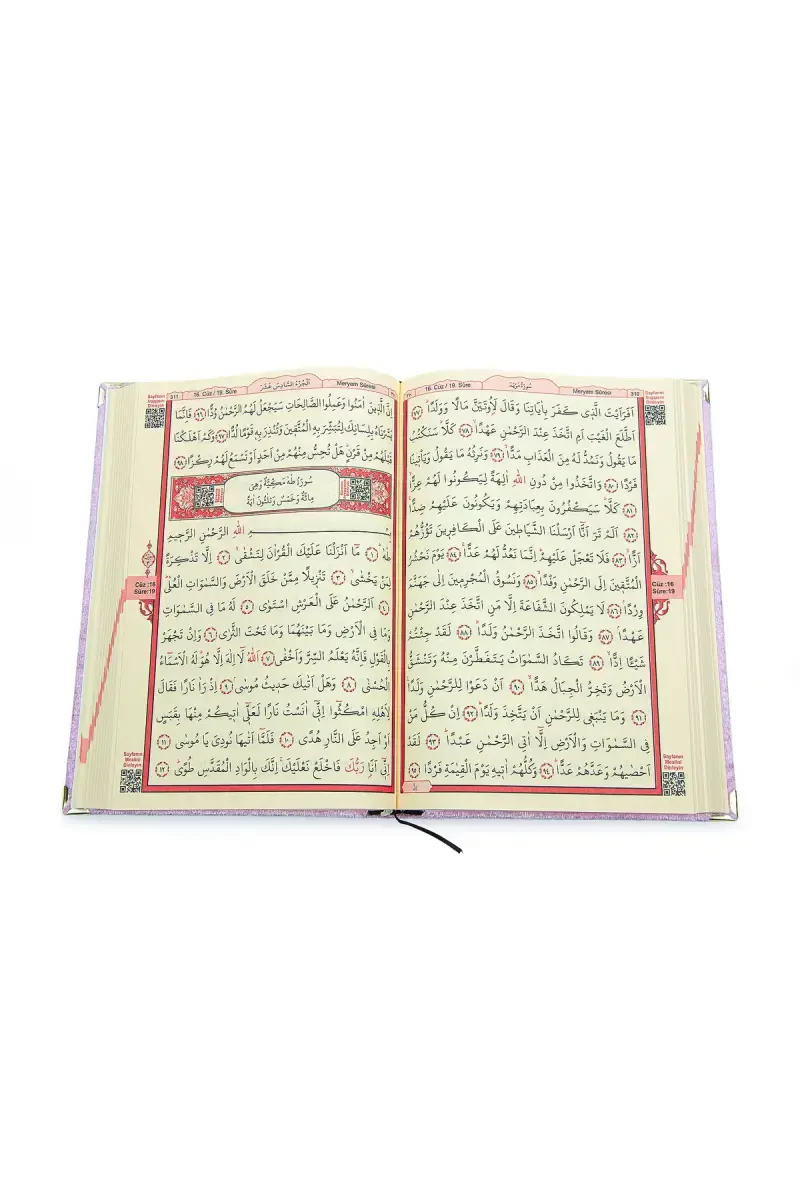 Meryem Sûresi 310
سُورَةُ مَرْيَمَ
16. Cüz / 19. Sûre
Sayfanın
Dinleyin
اَفَرَاَيْتَ الَّذ۪ي كَفَرَ بِاٰيَاتِنَا وَقَالَ لَاُو۫تَيَنَّ مَالًا وَوَلَدًاۜ ﴿٧٧﴾
اَطَّلَعَ الْغَيْبَ اَمِ اتَّخَذَ عِنْدَ الرَّحْمٰنِ عَهْدًاۙ ﴿٧٨﴾ كَلَّاۜ سَنَكْتُبُ
مَا يَقُولُ وَنَمُدُّ لَهُ مِنَ الْعَذَابِ مَدًّاۙ ﴿٧٩﴾ وَنَرِثُهُ مَا يَقُولُ وَيَأْت۪ينَا
فَرْدًا ﴿٨٠﴾ وَاتَّخَذُوا مِنْ دُونِ اللّٰهِ اٰلِهَةً لِيَكُونُوا لَهُمْ عِزًّاۙ
﴿٨١﴾ كَلَّاۜ سَيَكْفُرُونَ بِعِبَادَتِهِمْ وَيَكُونُونَ عَلَيْهِمْ ضِدًّا۟
﴿٨٢﴾ اَلَمْ تَرَ اَنَّٓا اَرْسَلْنَا الشَّيَاط۪ينَ عَلَى الْكَافِر۪ينَ تَؤُزُّهُمْ
اَزًّاۙ ﴿٨٣﴾ فَلَا تَعْجَلْ عَلَيْهِمْۜ اِنَّمَا نَعُدُّ لَهُمْ عَدًّاۚ ﴿٨٤﴾ يَوْمَ نَحْشُرُ
الْمُتَّق۪ينَ اِلَى الرَّحْمٰنِ وَفْدًاۙ ﴿٨٥﴾ وَنَسُوقُ الْمُجْرِم۪ينَ اِلٰى جَهَنَّمَ
وِرْدًاۢ ﴿٨٦﴾ لَا يَمْلِكُونَ الشَّفَاعَةَ اِلَّا مَنِ اتَّخَذَ عِنْدَ الرَّحْمٰنِ
عَهْدًاۢ ﴿٨٧﴾ وَقَالُوا اتَّخَذَ الرَّحْمٰنُ وَلَدًاۜ ﴿٨٨﴾ لَقَدْ جِئْتُمْ
شَيْـًٔا اِدًّاۙ ﴿٨٩﴾ تَكَادُ السَّمٰوَاتُ يَتَفَطَّرْنَ مِنْهُ وَتَنْشَقُّ
الْاَرْضُ وَتَخِرُّ الْجِبَالُ هَدًّاۙ ﴿٩٠﴾ اَنْ دَعَوْا لِلرَّحْمٰنِ وَلَدًاۚ
﴿٩١﴾ وَمَا يَنْبَغ۪ي لِلرَّحْمٰنِ اَنْ يَتَّخِذَ وَلَدًاۜ ﴿٩٢﴾ اِنْ كُلُّ مَنْ
فِي السَّمٰوَاتِ وَالْاَرْضِ اِلَّٓا اٰتِي الرَّحْمٰنِ عَبْدًاۜ ﴿٩٣﴾ لَقَدْ
اَحْصٰيهُمْ وَعَدَّهُمْ عَدًّاۜ ﴿٩٤﴾ وَكُلُّهُمْ اٰت۪يهِ يَوْمَ الْقِيٰمَةِ فَرْدًا ﴿٩٥﴾
Cüz :16
Sûre:19
Sayfanın
Mealini
Dinleyin
Meryem Sûresi
اَلْجُزْءُ السَّادِسَ عَشَرَ
16. Cüz / 19. Sûre
311
Sayfanın
Dinleyin
اِنَّ الَّذ۪ينَ اٰمَنُوا وَعَمِلُوا الصَّالِحَاتِ سَيَجْعَلُ لَهُمُ الرَّحْمٰنُ وُدًّا ﴿٩٦﴾ فَاِنَّمَا
يَسَّرْنَاهُ بِلِسَانِكَ لِتُبَشِّرَ بِهِ الْمُتَّق۪ينَ وَتُنْذِرَ بِه۪ قَوْمًا لُدًّا ﴿٩٧﴾ وَكَمْ اَهْلَكْنَا
قَبْلَهُمْ مِنْ قَرْنٍۜ هَلْ تُحِسُّ مِنْهُمْ مِنْ اَحَدٍ اَوْ تَسْمَعُ لَهُمْ رِكْزًا ﴿٩٨﴾
سُورَةُ طٰهٰ مَكِّيَّةٌ وَهِيَ
مِائَةٌ وَخَمْسٌ وَثَلٰثُونَ اٰيَةً
بِسْمِ اللّٰهِ الرَّحْمٰنِ الرَّح۪يمِ
طٰهٰۜ ﴿١﴾ مَٓا اَنْزَلْنَا عَلَيْكَ الْقُرْاٰنَ لِتَشْقٰىۙ ﴿٢﴾ اِلَّا تَذْكِرَةً
لِمَنْ يَخْشٰىۙ ﴿٣﴾ تَنْز۪يلًا مِمَّنْ خَلَقَ الْاَرْضَ وَالسَّمٰوَاتِ الْعُلٰىۜ
﴿٤﴾ اَلرَّحْمٰنُ عَلَى الْعَرْشِ اسْتَوٰى ﴿٥﴾ لَهُ مَا فِي السَّمٰوَاتِ
وَمَا فِي الْاَرْضِ وَمَا بَيْنَهُمَا وَمَا تَحْتَ الثَّرٰى ﴿٦﴾ وَاِنْ تَجْهَرْ
بِالْقَوْلِ فَاِنَّهُ يَعْلَمُ السِّرَّ وَاَخْفٰى ﴿٧﴾ اَللّٰهُ لَٓا اِلٰهَ اِلَّا هُوَۜ لَهُ الْاَسْمَٓاءُ
الْحُسْنٰى ﴿٨﴾ وَهَلْ اَتٰيكَ حَد۪يثُ مُوسٰىۢ ﴿٩﴾ اِذْ رَاٰ نَارًا فَقَالَ
لِاَهْلِهِ امْكُثُٓوا اِنّ۪ٓي اٰنَسْتُ نَارًا لَعَلّ۪ٓي اٰت۪يكُمْ مِنْهَا بِقَبَسٍ
اَوْ اَجِدُ عَلَى النَّارِ هُدًى ﴿١٠﴾ فَلَمَّٓا اَتٰيهَا نُودِيَ يَا مُوسٰى ﴿١١﴾
اِنّ۪ٓي اَنَا۬ رَبُّكَ فَاخْلَعْ نَعْلَيْكَۚ اِنَّكَ بِالْوَادِ الْمُقَدَّسِ طُوًىۜ ﴿١٢﴾
Cüz :16
Sûre:19
Sayfanın
Mealini
Dinleyin